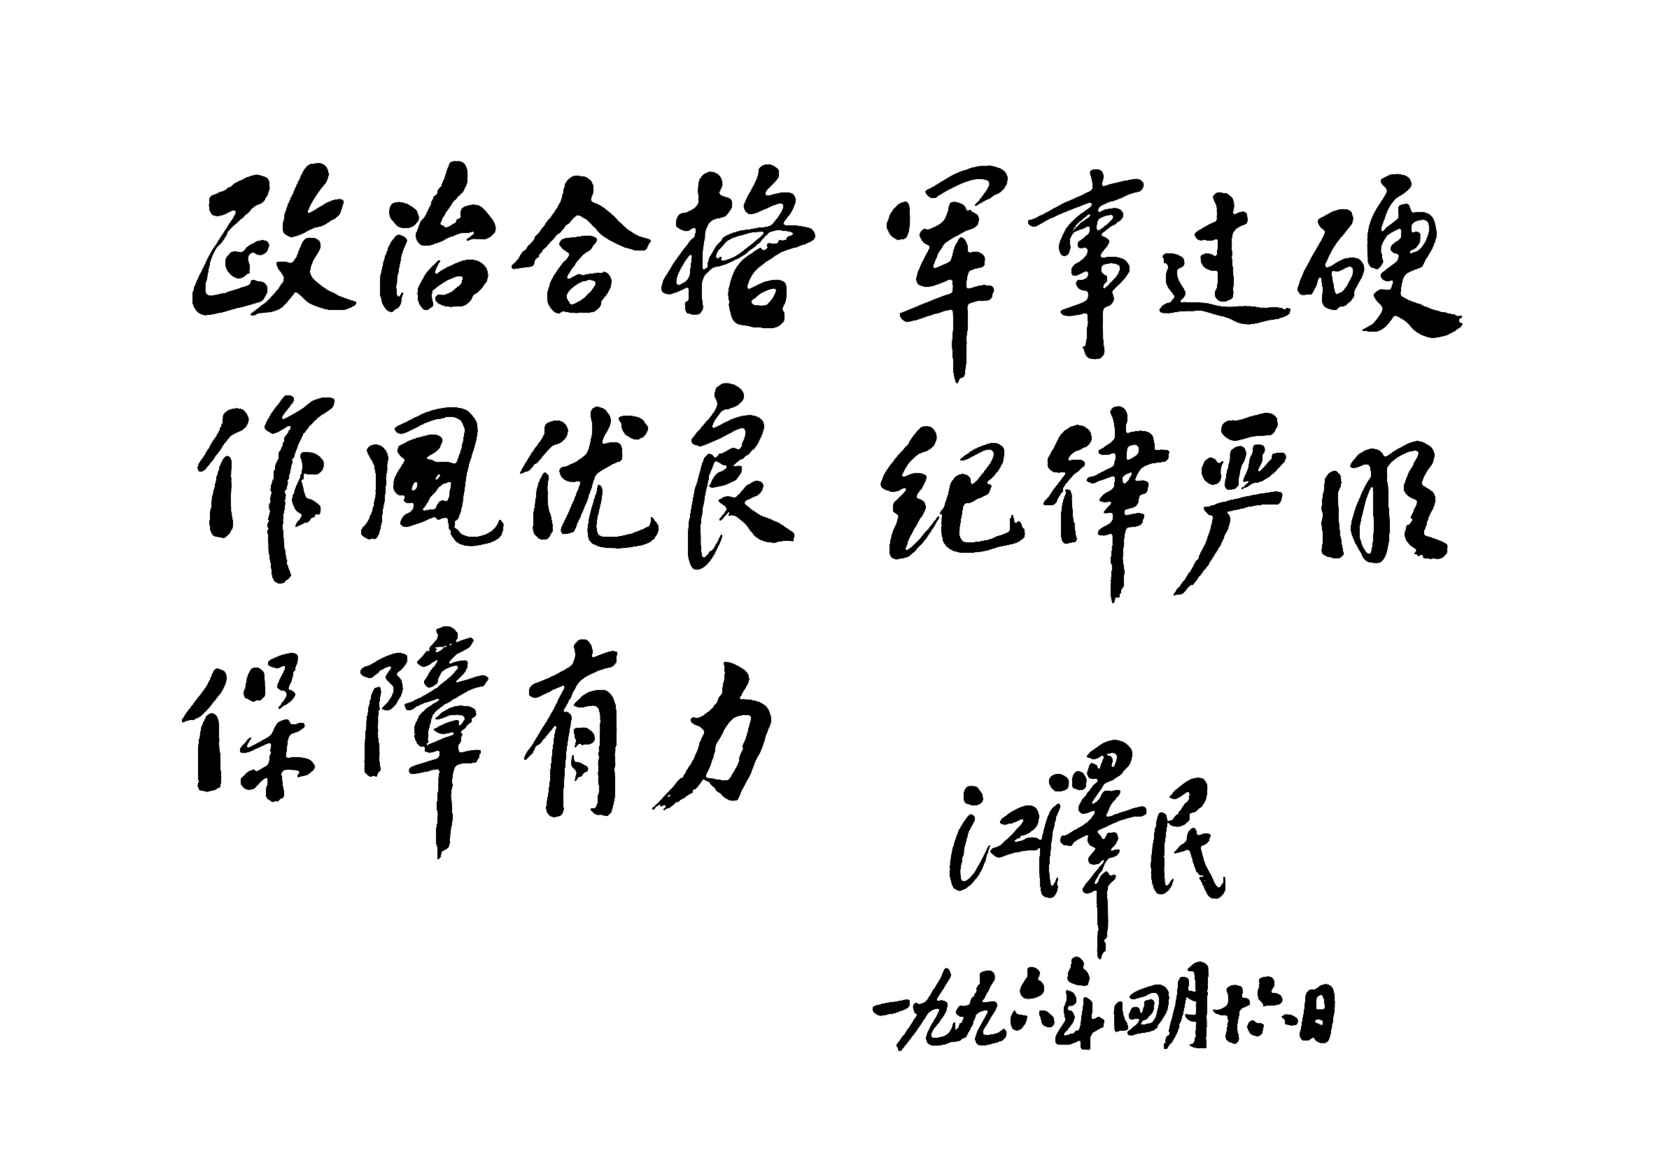 政治合格 军事过硬
作風优良 纪律严明
保障有力
江澤民
一九九六年四月十六日